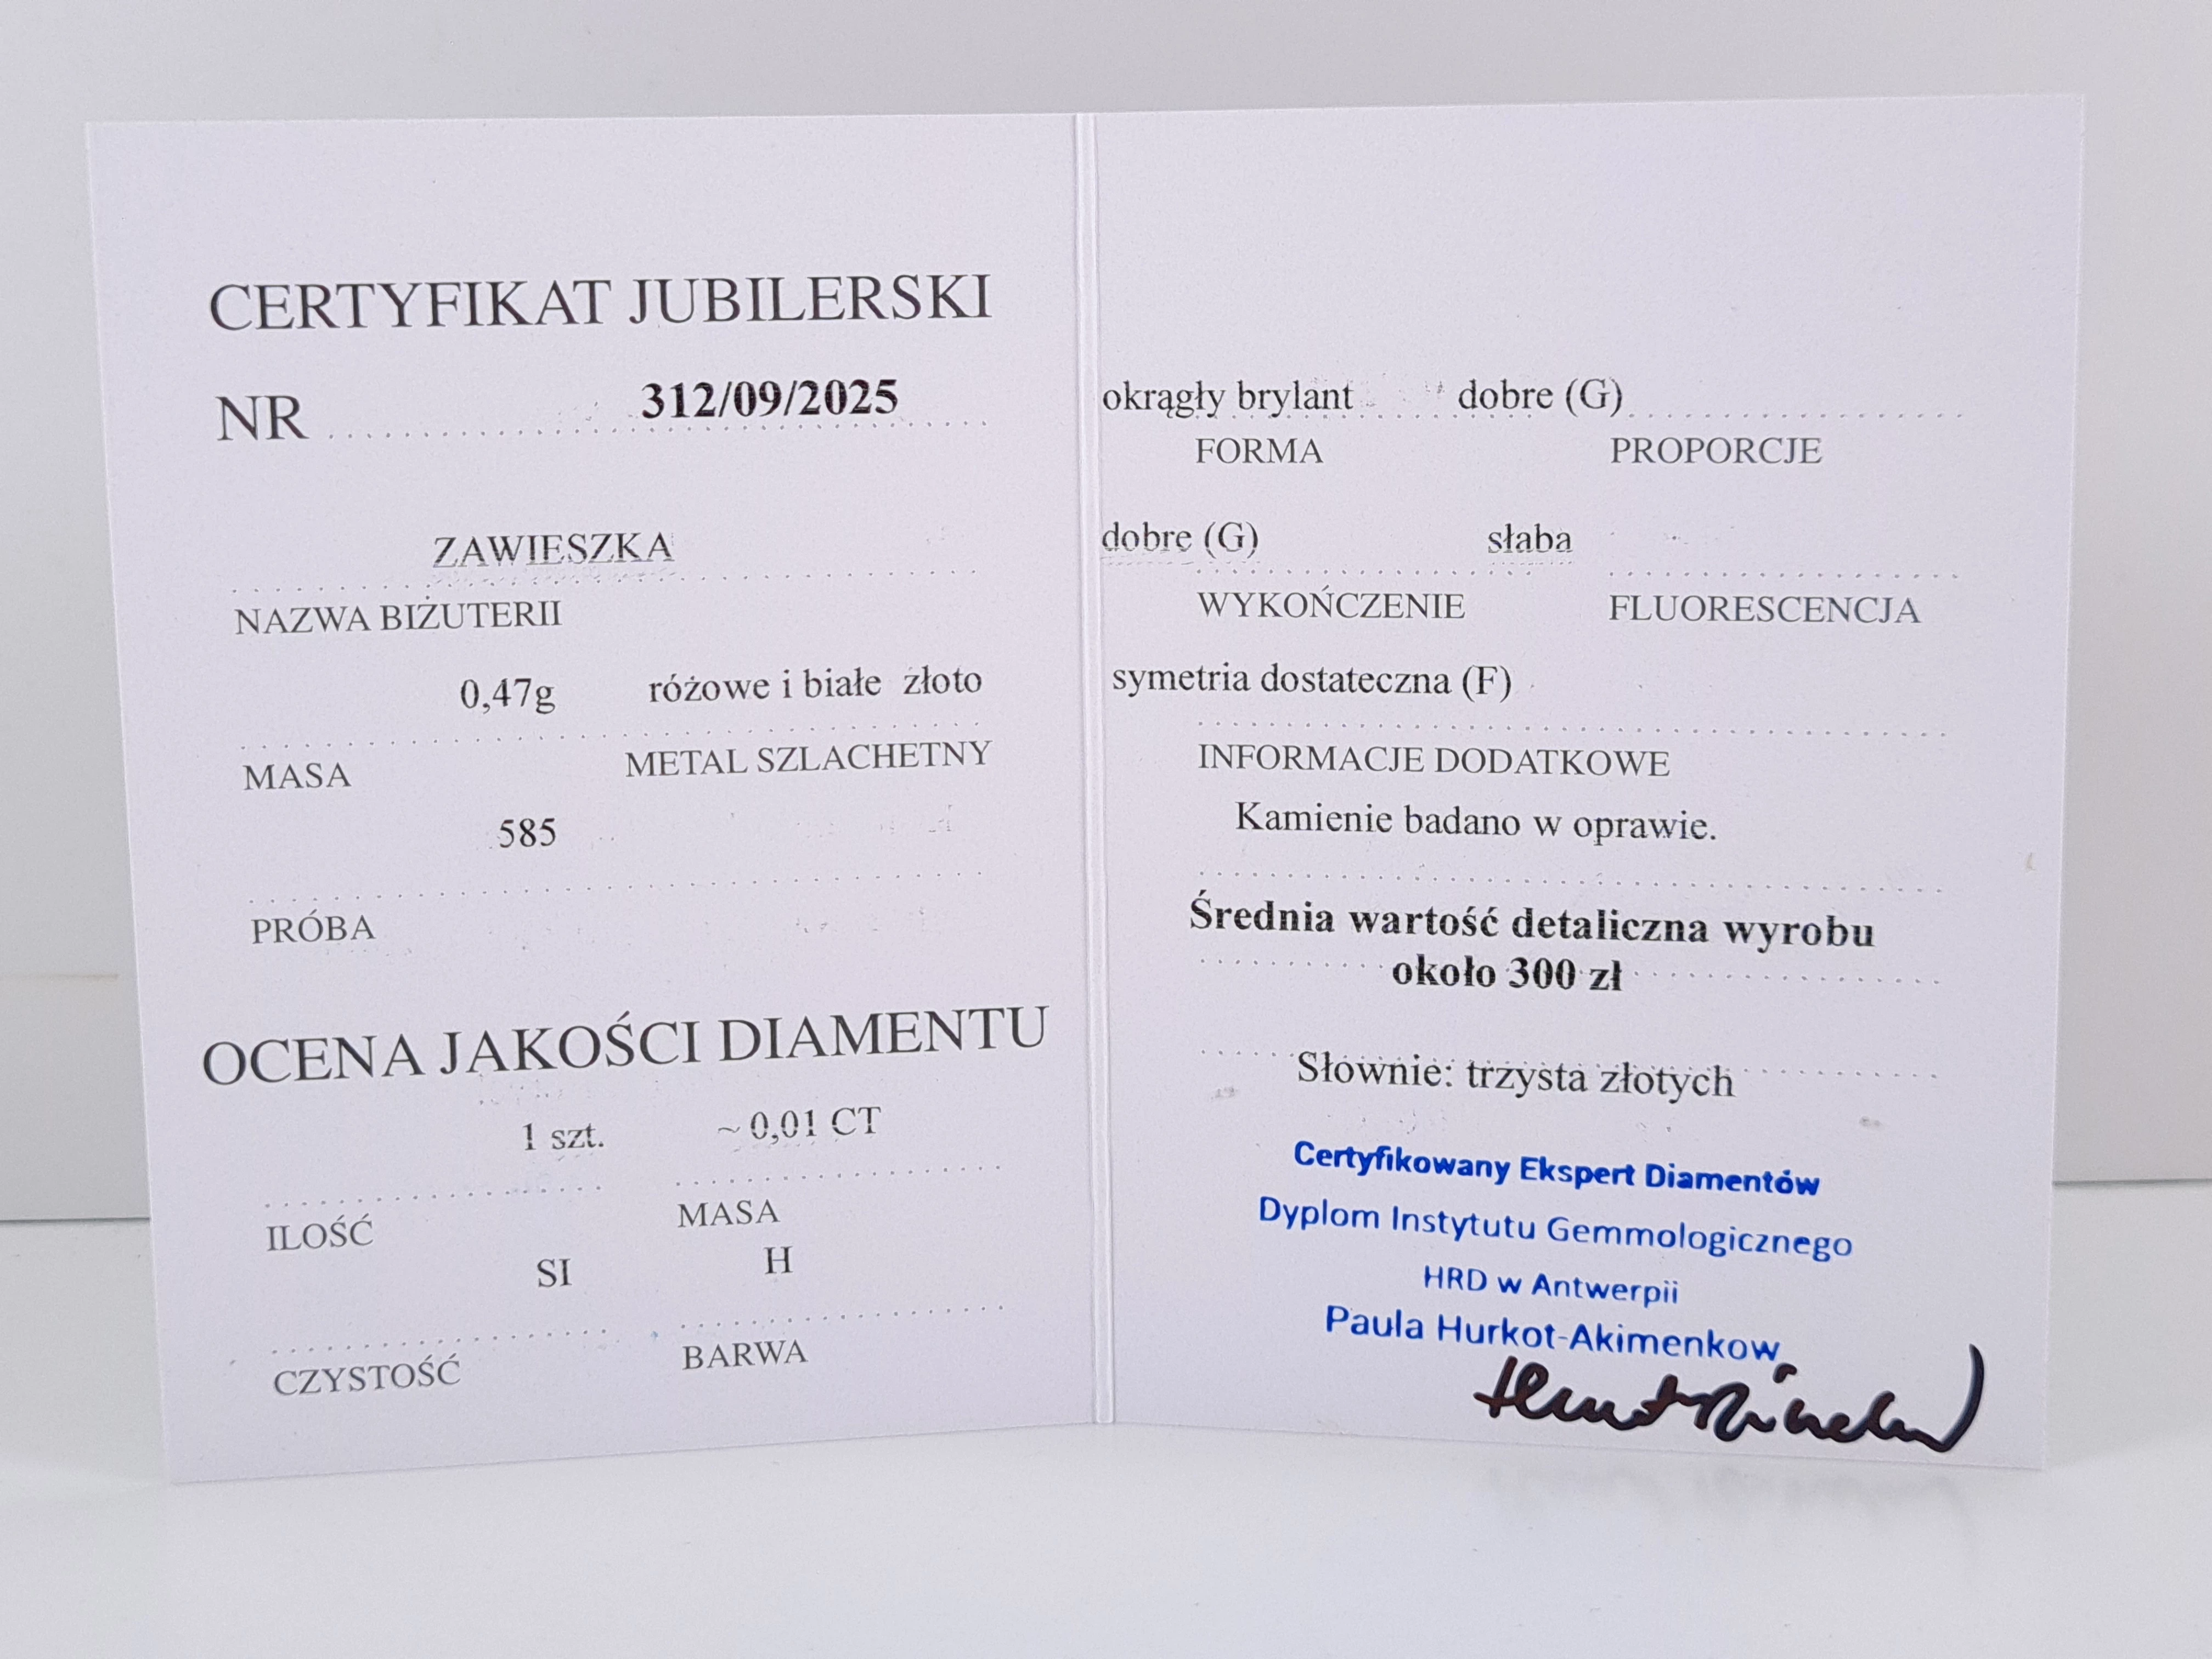 CERTYFIKAT JUBILERSKI
NR 312/09/2025
ZAWIESZKA
NAZWA BIŻUTERII
0,47g różowe i białe złoto
MASA METAL SZLACHETNY
585
PRÓBA
OCENA JAKOŚCI DIAMENTU
1 szt. ~ 0,01 CT
ILOŚĆ MASA
SI H
CZYSTOŚĆ BARWA
okrągły brylant dobre (G)
FORMA PROPORCJE
dobre (G) słaba
WYKOŃCZENIE FLUORESCENCJA
symetria dostateczna (F)
INFORMACJE DODATKOWE
Kamienie badano w oprawie.
Średnia wartość detaliczna wyrobu
około 300 zł
Słownie: trzysta złotych
Certyfikowany Ekspert Diamentów
Dyplom Instytutu Gemmologicznego
HRD w Antwerpii
Paula Hurkot-Akimenkow